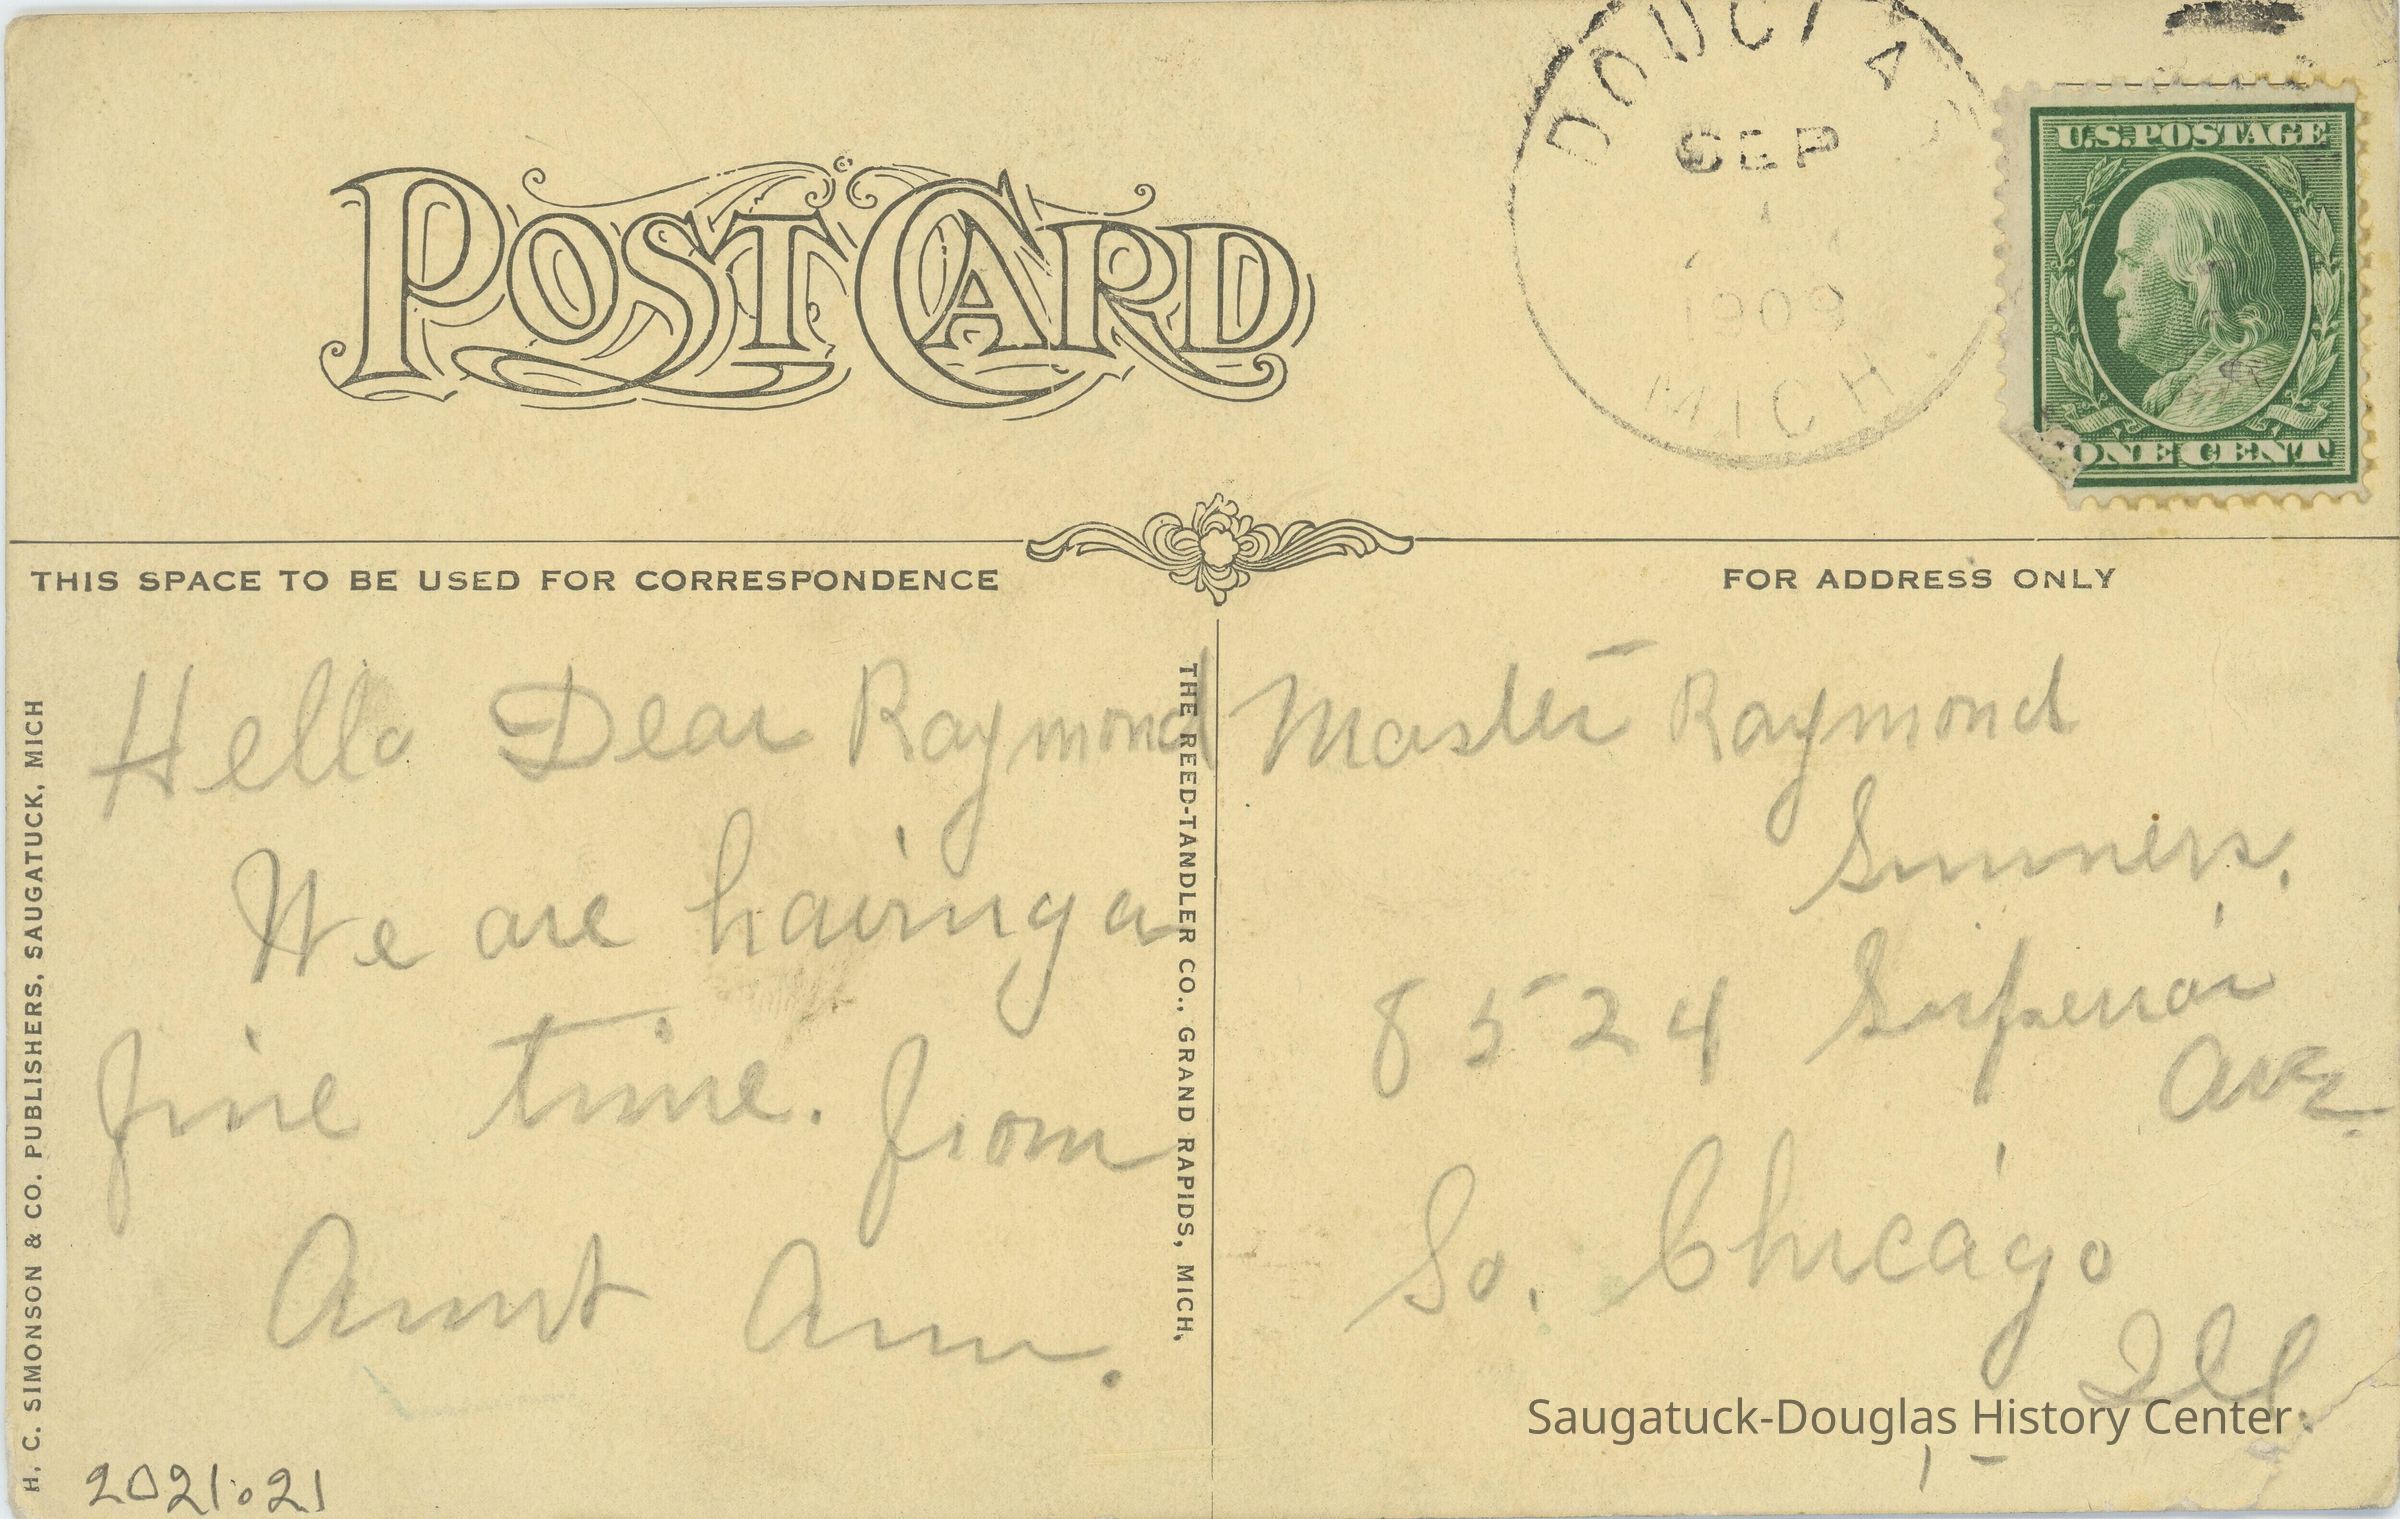 POST CARD
DOUGLAS
SEP
1909
MICH
U.S. POSTAGE
ONE CENT
THIS SPACE TO BE USED FOR CORRESPONDENCE
FOR ADDRESS ONLY
Hello Dear Raymond
We are having a
fine time. from
Aunt Ann.
Master Raymond
Sumners.
8524 Superior
Ave.
So. Chicago
Ill.
H. C. SIMONSON & CO. PUBLISHERS, SAUGATUCK, MICH
THE REED-TANDLER CO., GRAND RAPIDS, MICH,
2021.21
Saugatuck-Douglas History Center